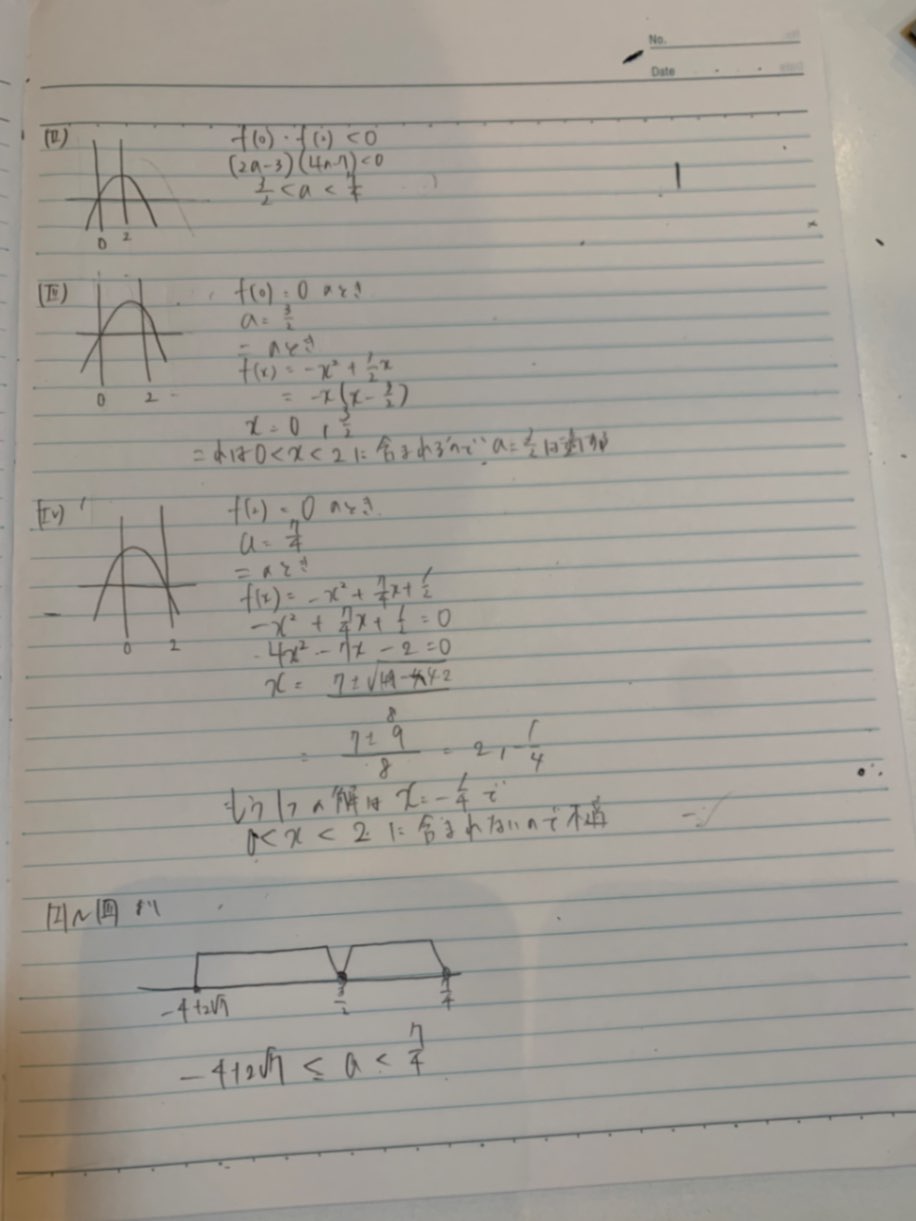 No.
Date
(Ⅱ)
f(0)・f(2) < 0
(2a-3)(4a-7) < 0
3/2 < a < 7/4
0 2
(Ⅲ)
f(0) = 0 のとき
a = 3/2
このとき
f(x) = -x² + 
= -x(x - 3/2)
x = 0 , 3/2
0 2
これは 0 < x < 2 に含まれるので a = 3/2 は適
(Ⅳ)
f(2) = 0 のとき
a = 7/4
このとき
f(x) = -x² + 7/4x + 1/2
-x² + 7/4x + 1/2 = 0
4x² - 7x - 2 = 0
x = 7±√49-4・4・2
8
= 7±9 / 8 = 2, -1/4
0 2
もう1つの解は x = -1/4 で
0 < x < 2 に含まれないので不適
(Ⅰ)~(Ⅲ) より
-4+2√7 3/2 7/4
-4+2√7 ≦ a < 7/4